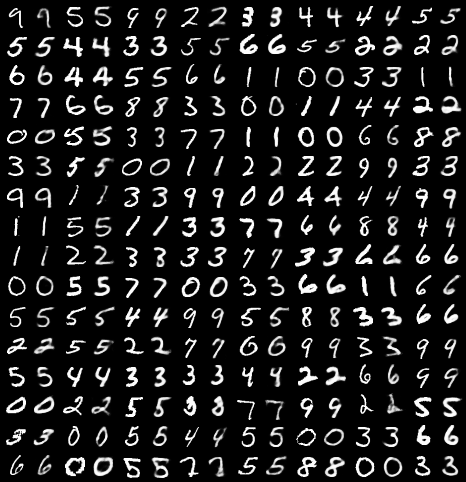 9 9 5 5 9 9 2 2 3 3 4 4 4 4 5 5
5 5 4 4 3 3 5 5 6 6 5 5 2 2 2 2
6 6 4 4 5 5 6 6 1 1 0 0 3 3 1 1
7 7 6 6 8 8 3 3 0 0 1 1 4 4 2 2
0 0 5 5 3 3 7 7 1 1 0 0 6 6 8 8
3 3 5 5 0 0 1 1 2 2 2 2 9 9 3 3
9 9 1 1 3 3 9 9 0 0 4 4 4 4 9 9
1 1 5 5 1 1 3 3 7 7 6 6 8 8 4 4
1 1 2 2 3 3 3 3 7 7 3 3 6 6 6 6
0 0 5 5 7 7 0 0 3 3 6 6 1 1 6 6
5 5 5 5 4 4 9 9 5 5 8 8 3 3 6 6
2 2 5 5 2 2 7 7 0 0 9 9 3 3 9 9
5 5 4 4 3 3 3 3 4 4 2 2 6 6 9 9
0 0 2 2 5 5 3 8 7 7 9 9 2 2 5 5
3 3 0 0 5 5 4 4 5 5 0 0 3 3 6 6
6 6 0 0 5 5 7 7 5 5 8 8 0 0 3 3